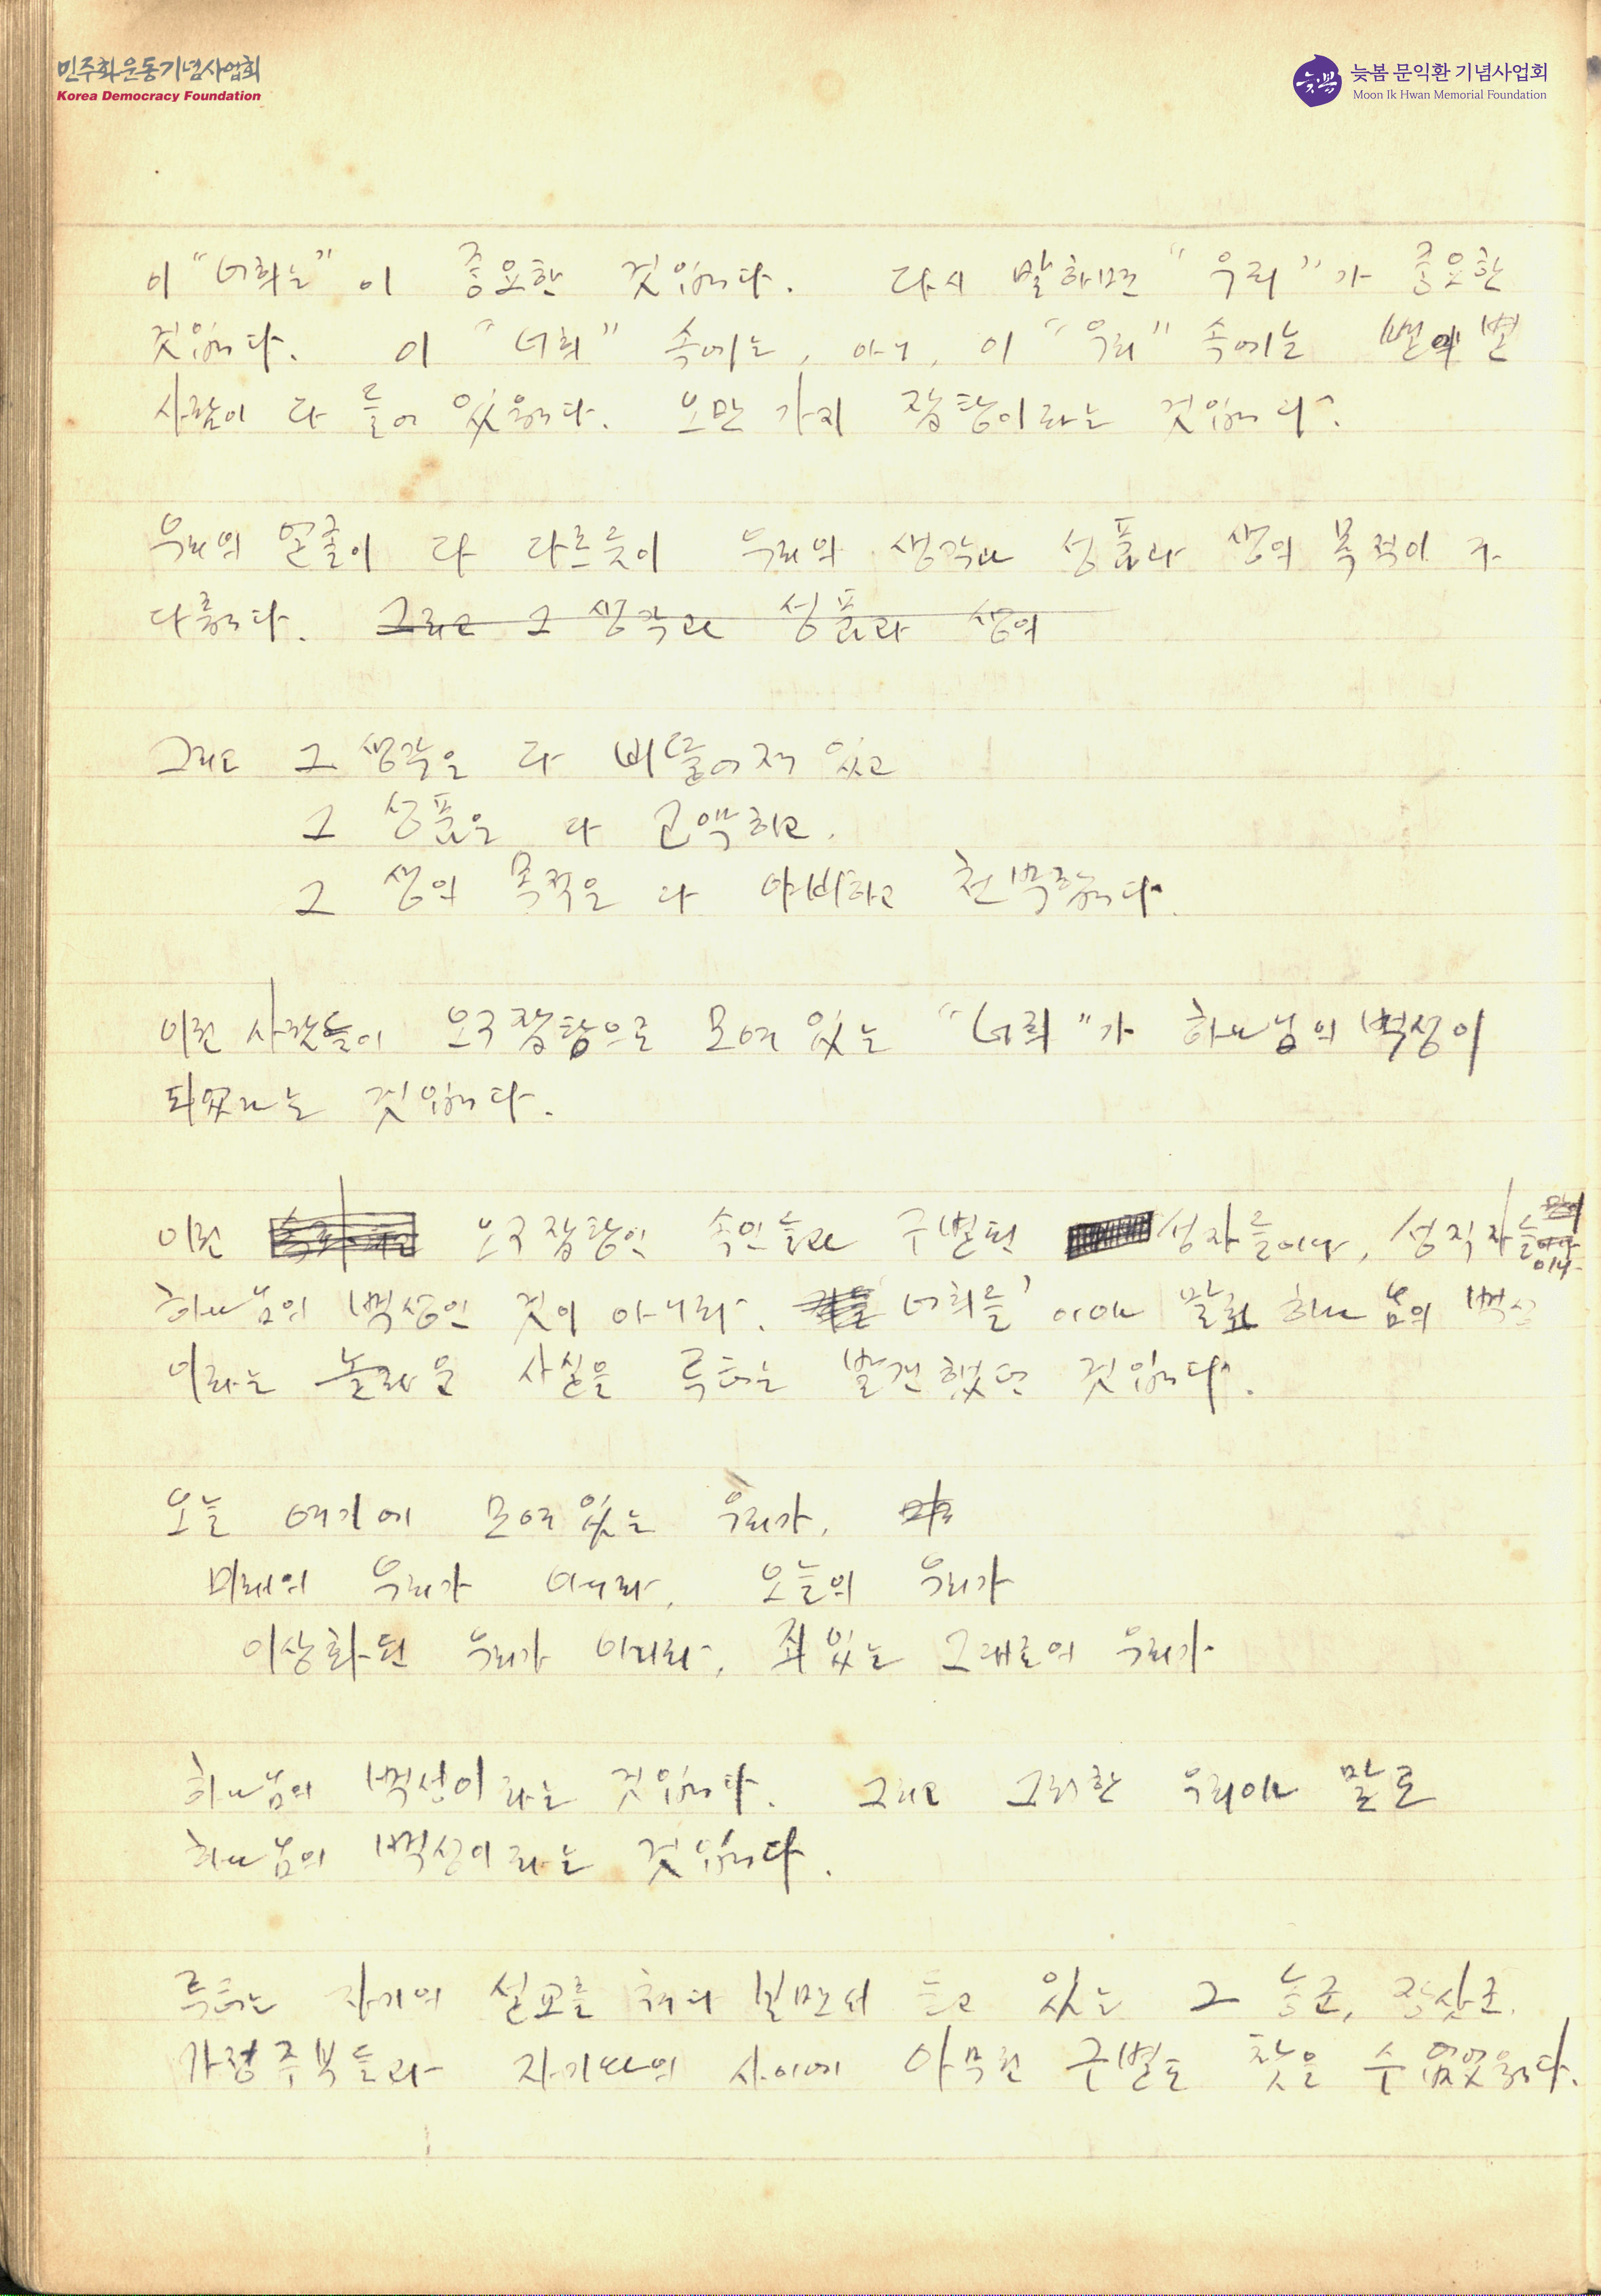 민주화운동기념사업회
Korea Democracy Foundation
늦봄 문익환 기념사업회
Moon Ik Hwan Memorial Foundation
이 "너희는" 이 중요한 것입니다. 다시 말하면 "우리"가 중요한
것입니다. 이 "너희" 속에는, 아니, 이 "우리" 속에는 별의 별
사람이 다 들어 있읍니다. 오만 가지 잡탕이라는 것입니다.
우리의 얼굴이 다 다르듯이 우리의 생각과 성품과 생의 목적이 다
다릅니다. 그리고 그 생각과 성품과 생의
그리고 그 생각은 다 비뚤어져 있고
그 성품은 다 고약하고,
그 생의 목적은 다 야비하고 천박합니다.
이런 사람들이 오구잡탕으로 모여 있는 "너희"가 하나님의 백성이
되였다는 것입니다.
이런 오구잡탕인 속인들과 구별된 성자들이나, 성직자들이
하나님의 백성인 것이 아니라, 너희들이야 말로 하나님의 백성
이라는 놀라운 사실을 루터는 발견했던 것입니다.
오늘 여기에 모여있는 우리가,
미래의 우리가 아니라, 오늘의 우리가
이상화된 우리가 아니라, 죄있는 그대로의 우리가
하나님의 백성이라는 것입니다. 그리고 그러한 우리야 말로
하나님의 백성이라는 것입니다.
루터는 자기의 설교를 쳐다 보면서 듣고 있는 그 농군, 장삿군,
가정주부들과 자기와의 사이에 아무런 구별도 찾을 수 없었읍니다.